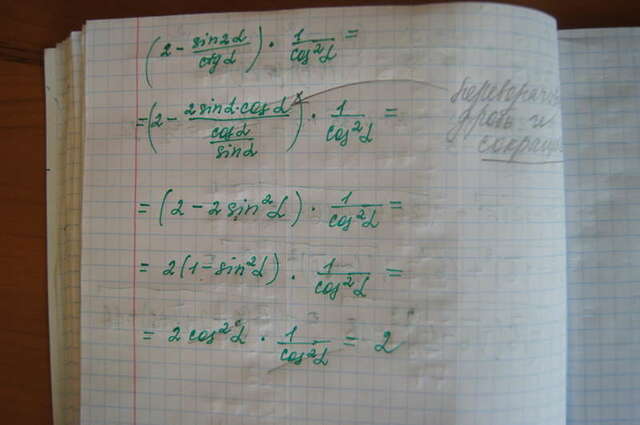 (2 - sin2α/ctgα) · 1/cos²α =
= (2 - 2sinα·cosα/(cosα/sinα)) · 1/cos²α =
переворачи
дробь и
сокращ
= (2 - 2sin²α) · 1/cos²α =
= 2(1-sin²α) · 1/cos²α =
= 2cos²α · 1/cos²α = 2